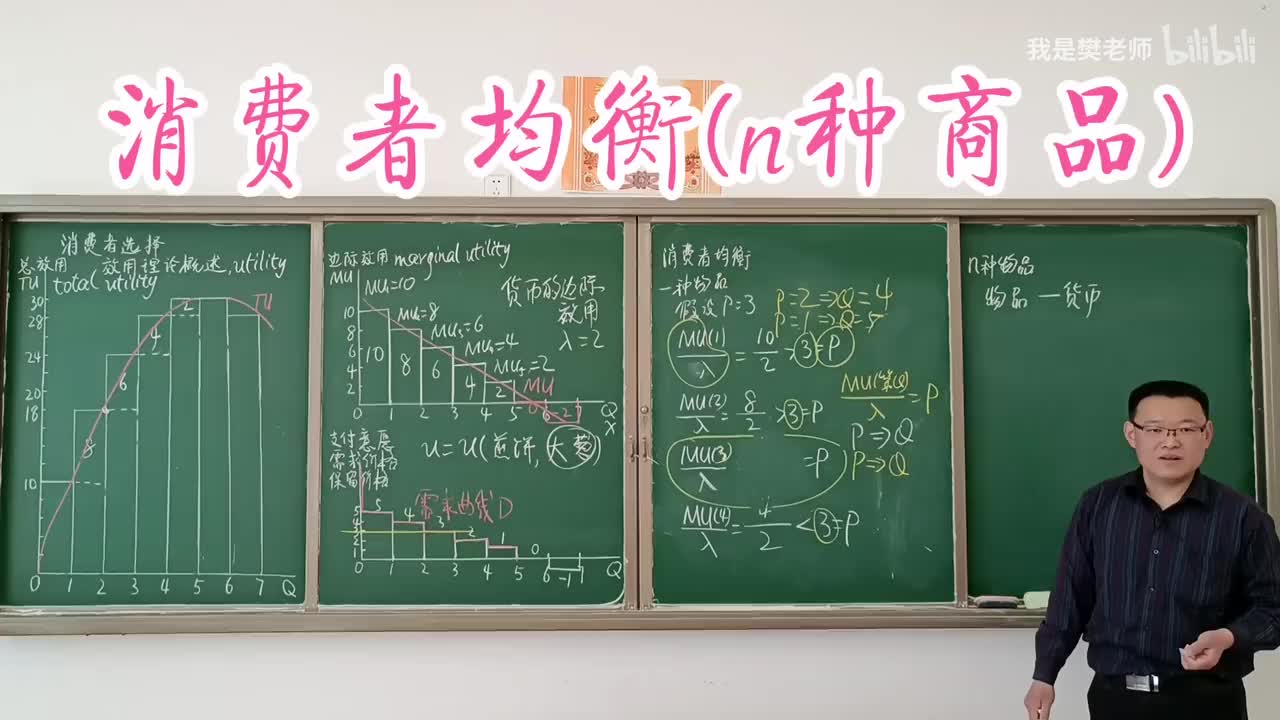 我是樊老师 bilibili
消费者均衡(n种商品)
消费者选择
总效用 效用理论概述, utility
TU total utility
30
28
24
20
18
10
0 1 2 3 4 5 6 7 Q
8
6
4
2
TU
边际效用 marginal utility
MU MU=10
MU₂=8
MU₃=6
MU₄=4
MU₅=2
货币的边际
效用
λ=2
10
8
6
4
2
10 8 6 4 2 MU
0 1 2 3 4 5 6 -2 7 Q
X
支付意愿
需求价格
保留价格
u=u(煎饼,大葱)
需求曲线D
5 4 3 2 1 0
5
4
3
2
1
0 1 2 3 4 5 6 -1 7 Q
消费者均衡
一种物品
假设P=3
P=2⇒Q=4
P=1⇒Q=5
MU(1)/λ=10/2>3=P
MU(2)/λ=8/2>3=P
MU(3)/λ =P
MU(4)/λ=4/2<3=P
=P
P⇒Q
P⇒Q
n种物品
物品—货币